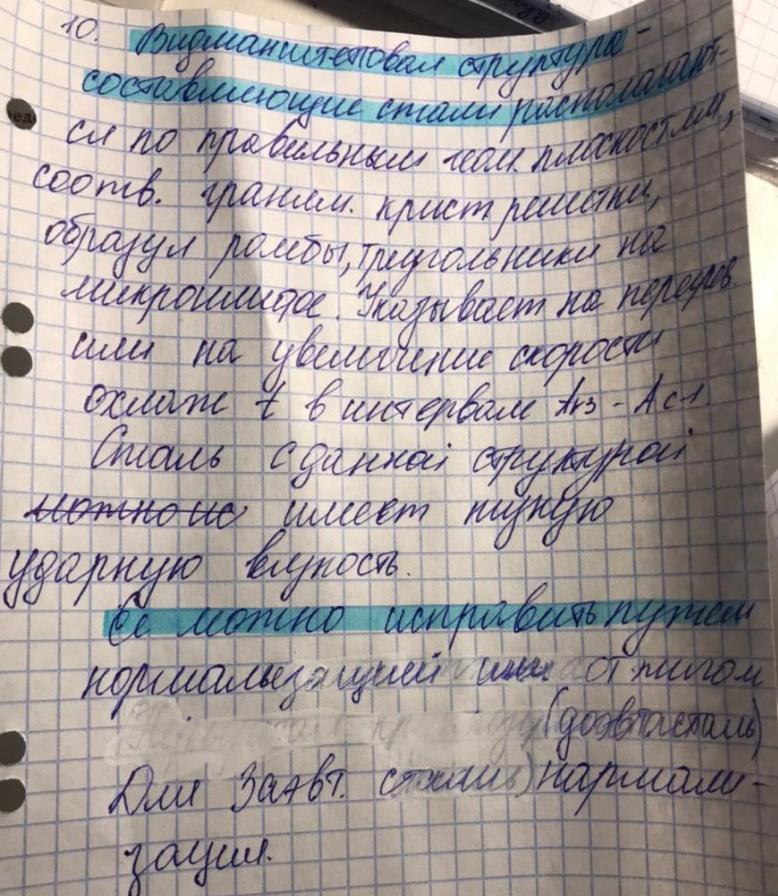 10. Видманштетовая структура -
составляющие стали располагают-
ся по правильным геом. плоскостям,
соотв. граням. крист решетки,
образуя ромбы, треугольники на
микрошлифе. Указывает на перегрев
или на увеличение скорости
охлаж t в интервале Ar3 - Ac1.
Сталь с данной структурой
можно ис имеет низкую
ударную вязкость.
Её можно исправить путём
нормализацией или отжигом
(доэвт сталь)
Для Заэвт. сталь) нормали-
зация.